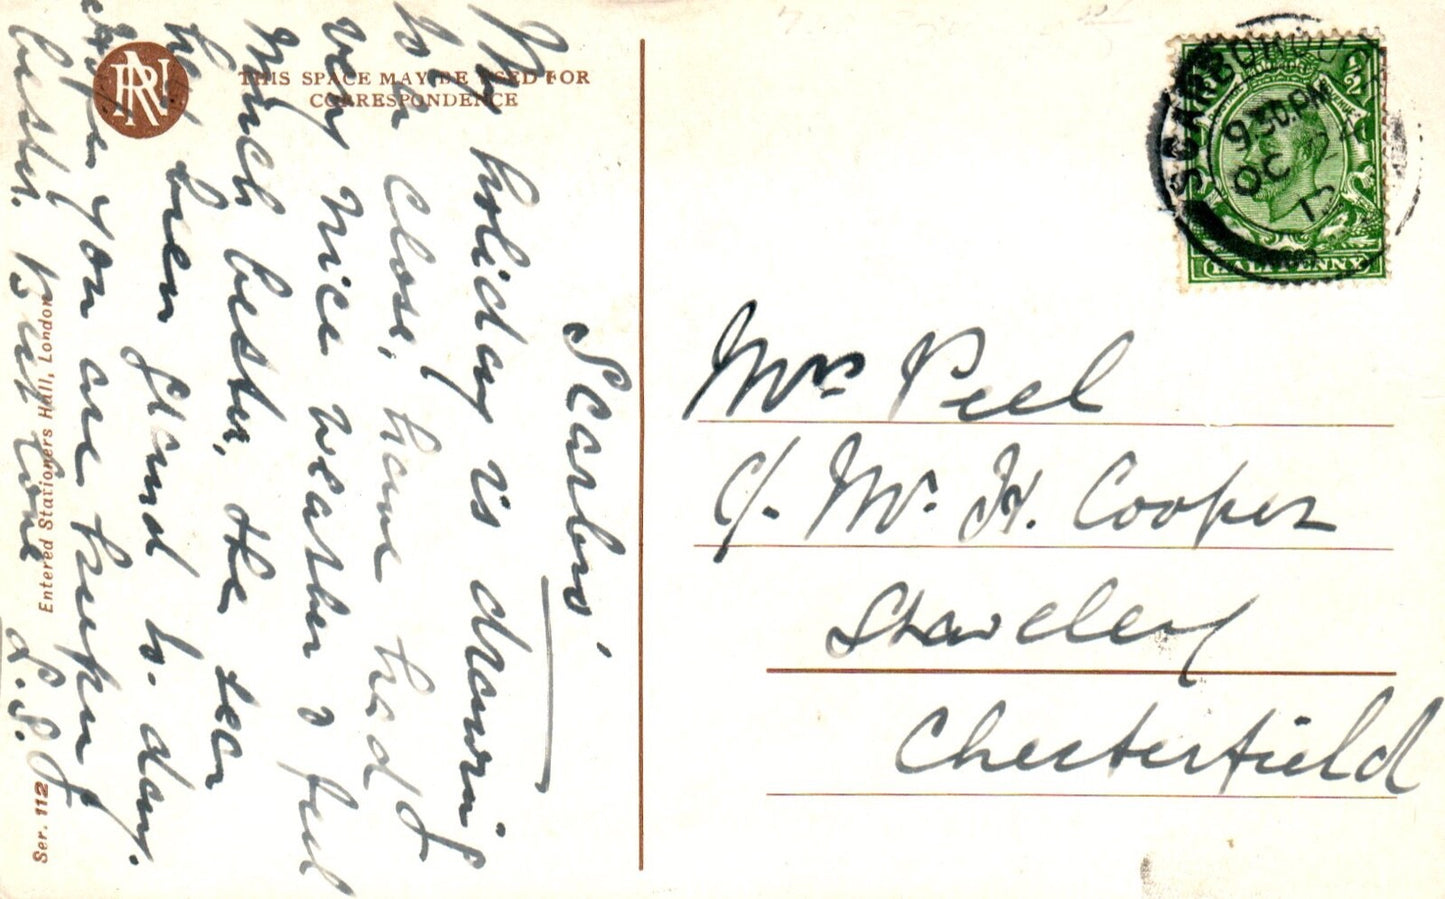 THIS SPACE MAY BE USED FOR
CORRESPONDENCE
Scarbro'
My holiday is drawing
to a close, have had
very nice weather & feel
much better, the sea
has been grand to-day.
hope you are keeping
better. Best love
L.S.J
Entered Stationers Hall, London
Ser. 112
SCARBOROUGH
9.30.PM
OC 24
15
HALFPENNY
Mrs Peel
c/. Mr. H. Cooper
Staveley
Chesterfield